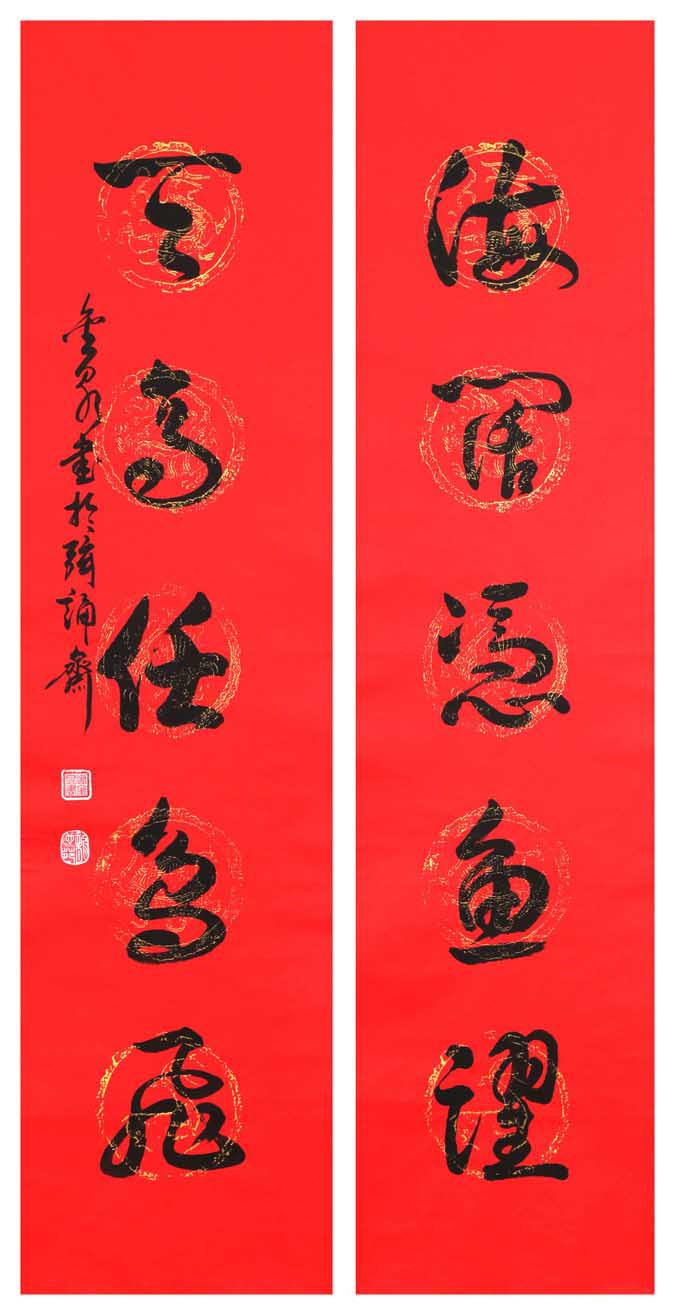 海闊憑魚躍
天高任鳥飛
金泉書於誦齋